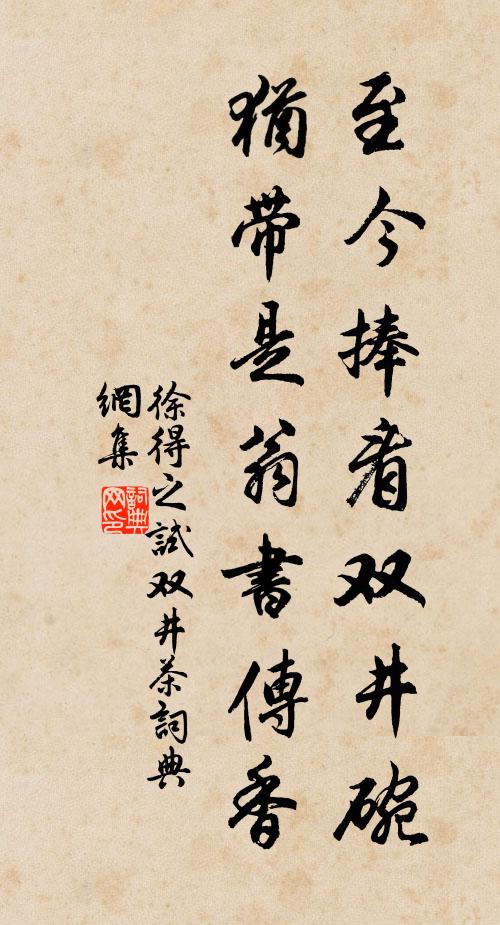 至今捧者双井碗
猶带是翁書傳香
徐得之試双井茶詞典
網集
詞典网印